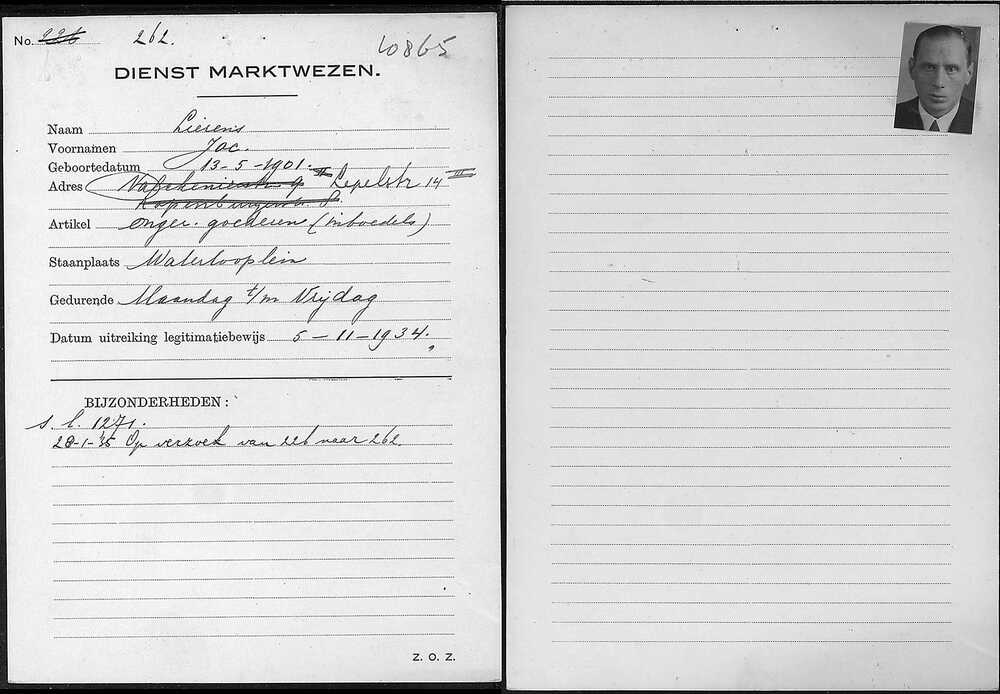 No. 226 262. 10865
DIENST MARKTWEZEN.
Naam Lierens
Voornamen Jac.
Geboortedatum 13-5-1901.
Adres Valckenierstr. 9 II Lepelstr 14 III
Rapenburgerstr. 8
Artikel onger. goederen (inboedels)
Staanplaats Waterlooplein
Gedurende Maandag t/m Vrijdag
Datum uitreiking legitimatiebewijs 5-11-1934.
BIJZONDERHEDEN:
s. l. 1271.
28-1-'35 Op verzoek van 226 naar 262
Z. O. Z.